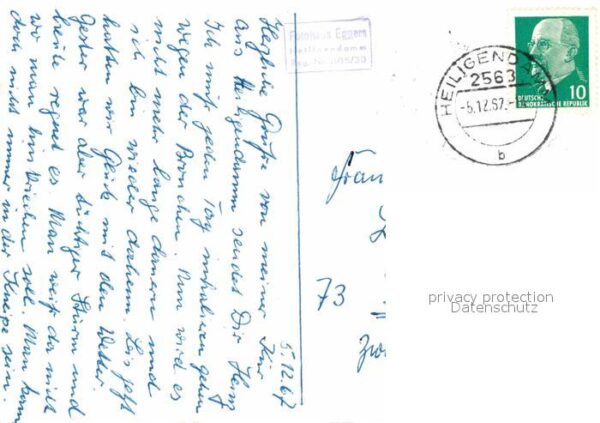 5.12.67
Herzliche Grüße von meiner Kur
aus Heiligendamm sendet Dir Hans
Ich muß jeden Tag inhalieren gehen
wegen der Bronchien. Nun wird es
nicht mehr lange dauern und
ich bin wieder daheim. Bis jetzt
hatten wir Glück mit dem Wetter.
Gestern war aber tüchtiger Sturm und
heute regnet es. Man weiß da nicht
wo man hin kriechen soll. Man kann
doch nicht immer in der Kneipe sein.
Fotohaus Eggers
Heiligendamm
HEILIGENDAMM
2563
-5.12.67.-
b
10
DEUTSCHE
DEMOKRATISCHE REPUBLIK
Frau
73
Zw
privacy protection
Datenschutz